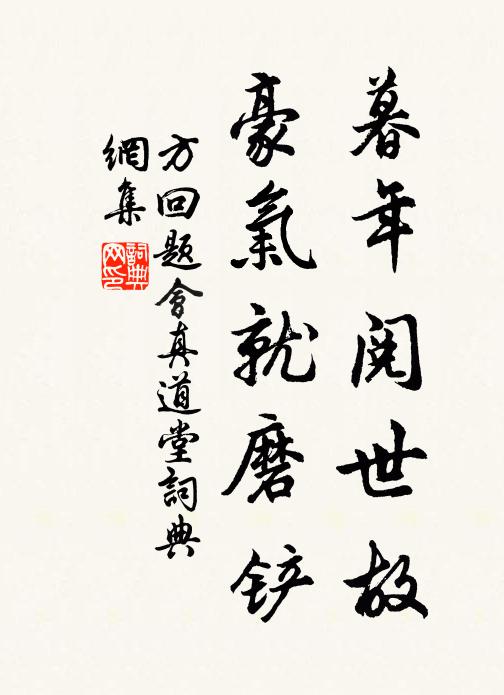 暮年阅世故
豪氣就磨铲
方回題會真道堂詞典
網集
詞典網印